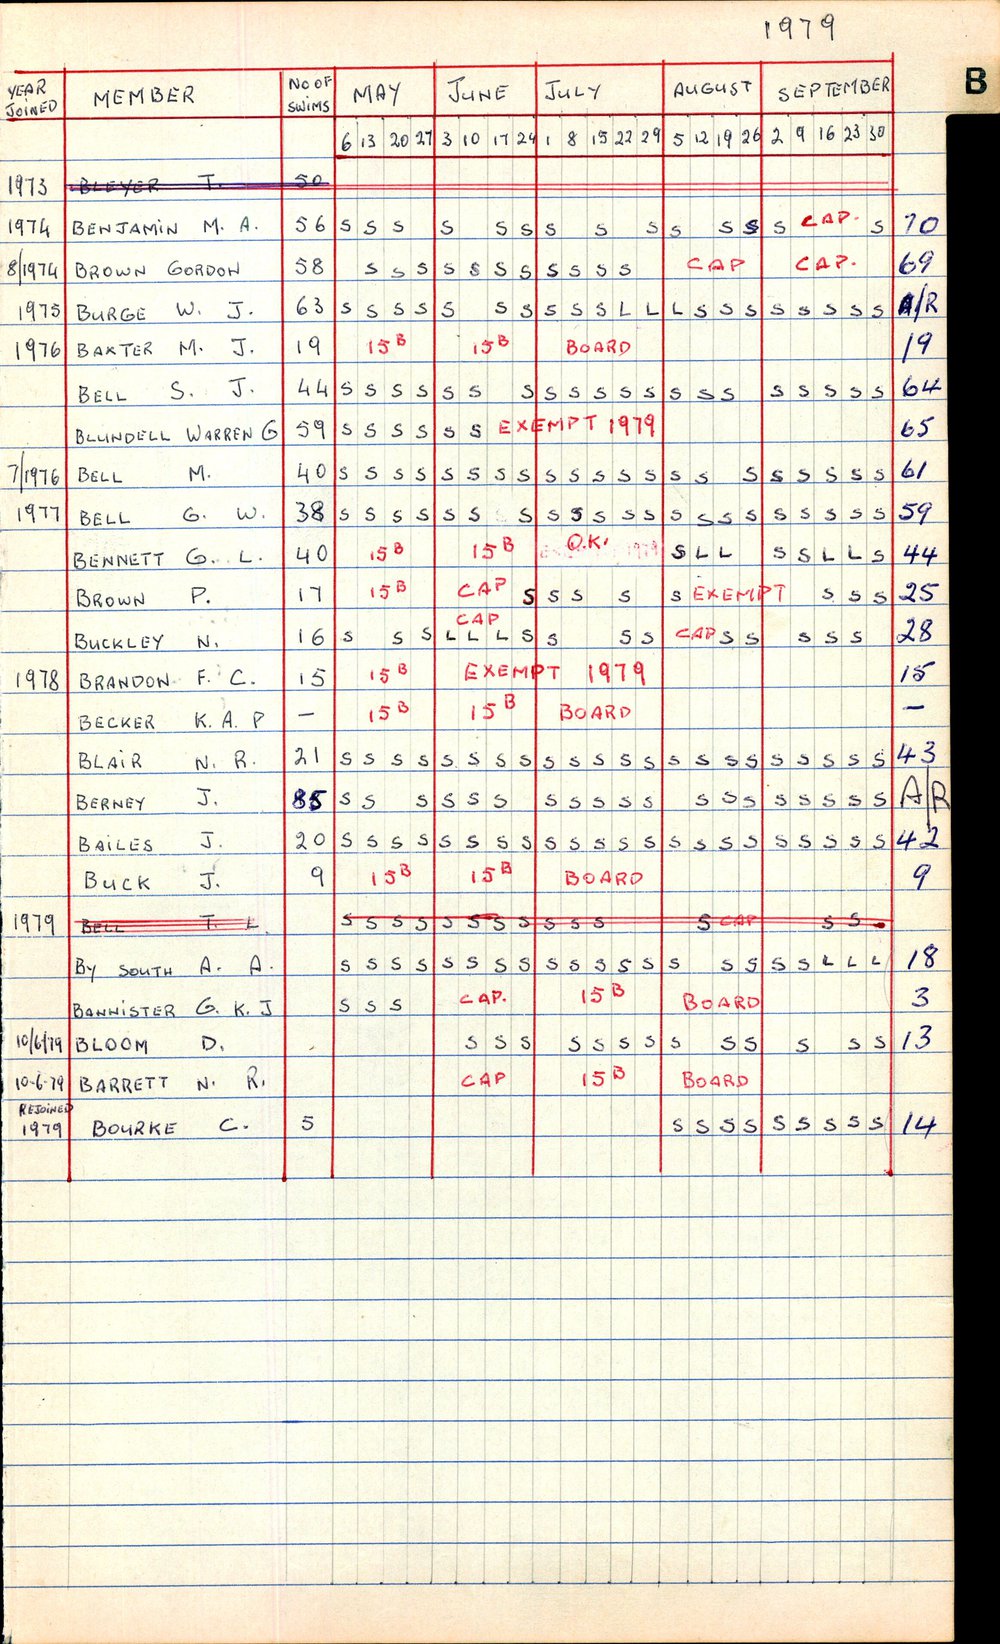 1979
B
YEAR JOINED MEMBER NO OF SWIMS MAY JUNE JULY AUGUST SEPTEMBER
6 13 20 27 3 10 17 24 1 8 15 22 29 5 12 19 26 2 9 16 23 30
1973 BLEYER T. 50
1974 BENJAMIN M. A. 56 S S S S S S S S S S S S S CAP. S 70
8/1974 BROWN GORDON 58 S S S S S S S S S S S CAP CAP. 69
1975 BURGE W. J. 63 S S S S S S S S S S L L L S S S S S S S S A/R
1976 BAXTER M. J. 19 15B 15B BOARD 19
BELL S. J. 44 S S S S S S S S S S S S S S S S S S S S 64
BLUNDELL WARREN G 59 S S S S S S EXEMPT 1979 65
7/1976 BELL M. 40 S S S S S S S S S S S S S S S S S S S S S 61
1977 BELL G. W. 38 S S S S S S S S S S S S S S S S S S S S S 59
BENNETT G. L. 40 15B 15B O.K. 1979 S L L S S L L S 44
BROWN P. 17 15B CAP S S S S S EXEMPT S S S 25
CAP
BUCKLEY N. 16 S S S L L L S S S S CAP S S S S S 28
1978 BRANDON F. C. 15 15B EXEMPT 1979 15
BECKER K. A. P — 15B 15B BOARD —
BLAIR N. R. 21 S S S S S S S S S S S S S S S S S S S S S S 43
BERNEY J. 85 S S S S S S S S S S S S S S S S S S S A/R
BAILES J. 20 S S S S S S S S S S S S S S S S S S S S S S 42
BUCK J. 9 15B 15B BOARD 9
1979 BELL T. L. S S S S S S S S S S S S CAP S S
BY SOUTH A. A. S S S S S S S S S S S S S S S S S S L L L 18
BANNISTER G. K. J S S S CAP. 15B BOARD 3
10/6/79 BLOOM D. S S S S S S S S S S S S S S 13
10-6-79 BARRETT N. R. CAP 15B BOARD
REJOINED
1979 BOURKE C. 5 S S S S S S S S S 14